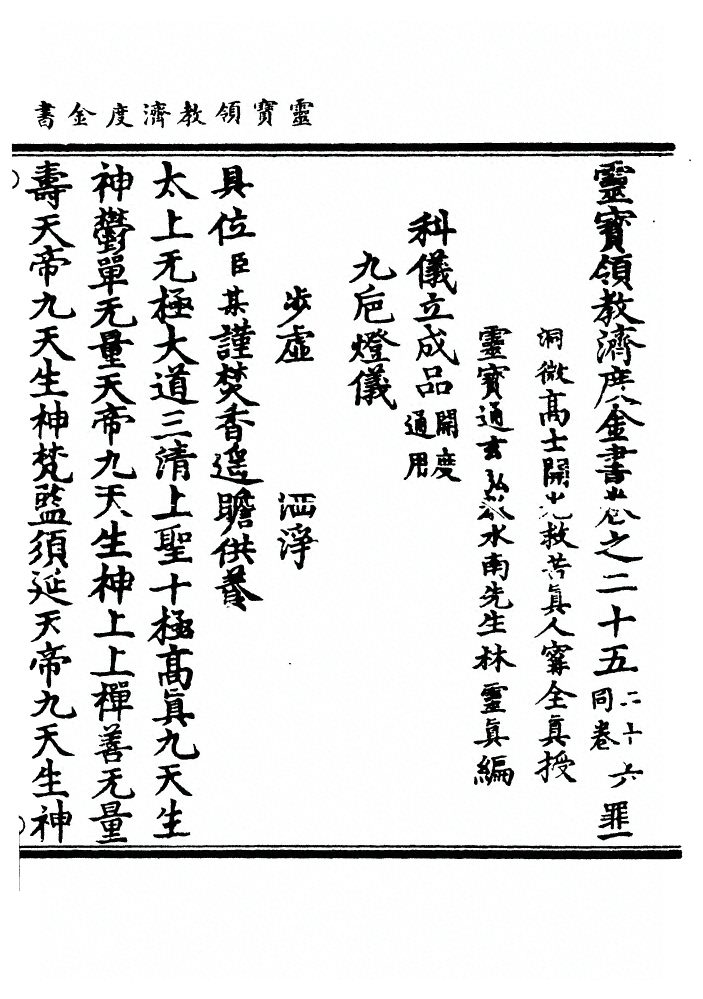 靈寶領教濟度金書
靈寶領教濟度金書卷之二十五 二十六同卷 罪一
洞微高士開光救苦真人甯全真授
靈寶通玄弘教水南先生林靈真編
科儀立成品 開度通用
九巵燈儀
步虛 洒淨
具位臣某謹焚香遥瞻供養
太上无極大道三清上聖十極高真九天生
神鬱單无量天帝九天生神上上禪善无量
壽天帝九天生神梵監須延天帝九天生神